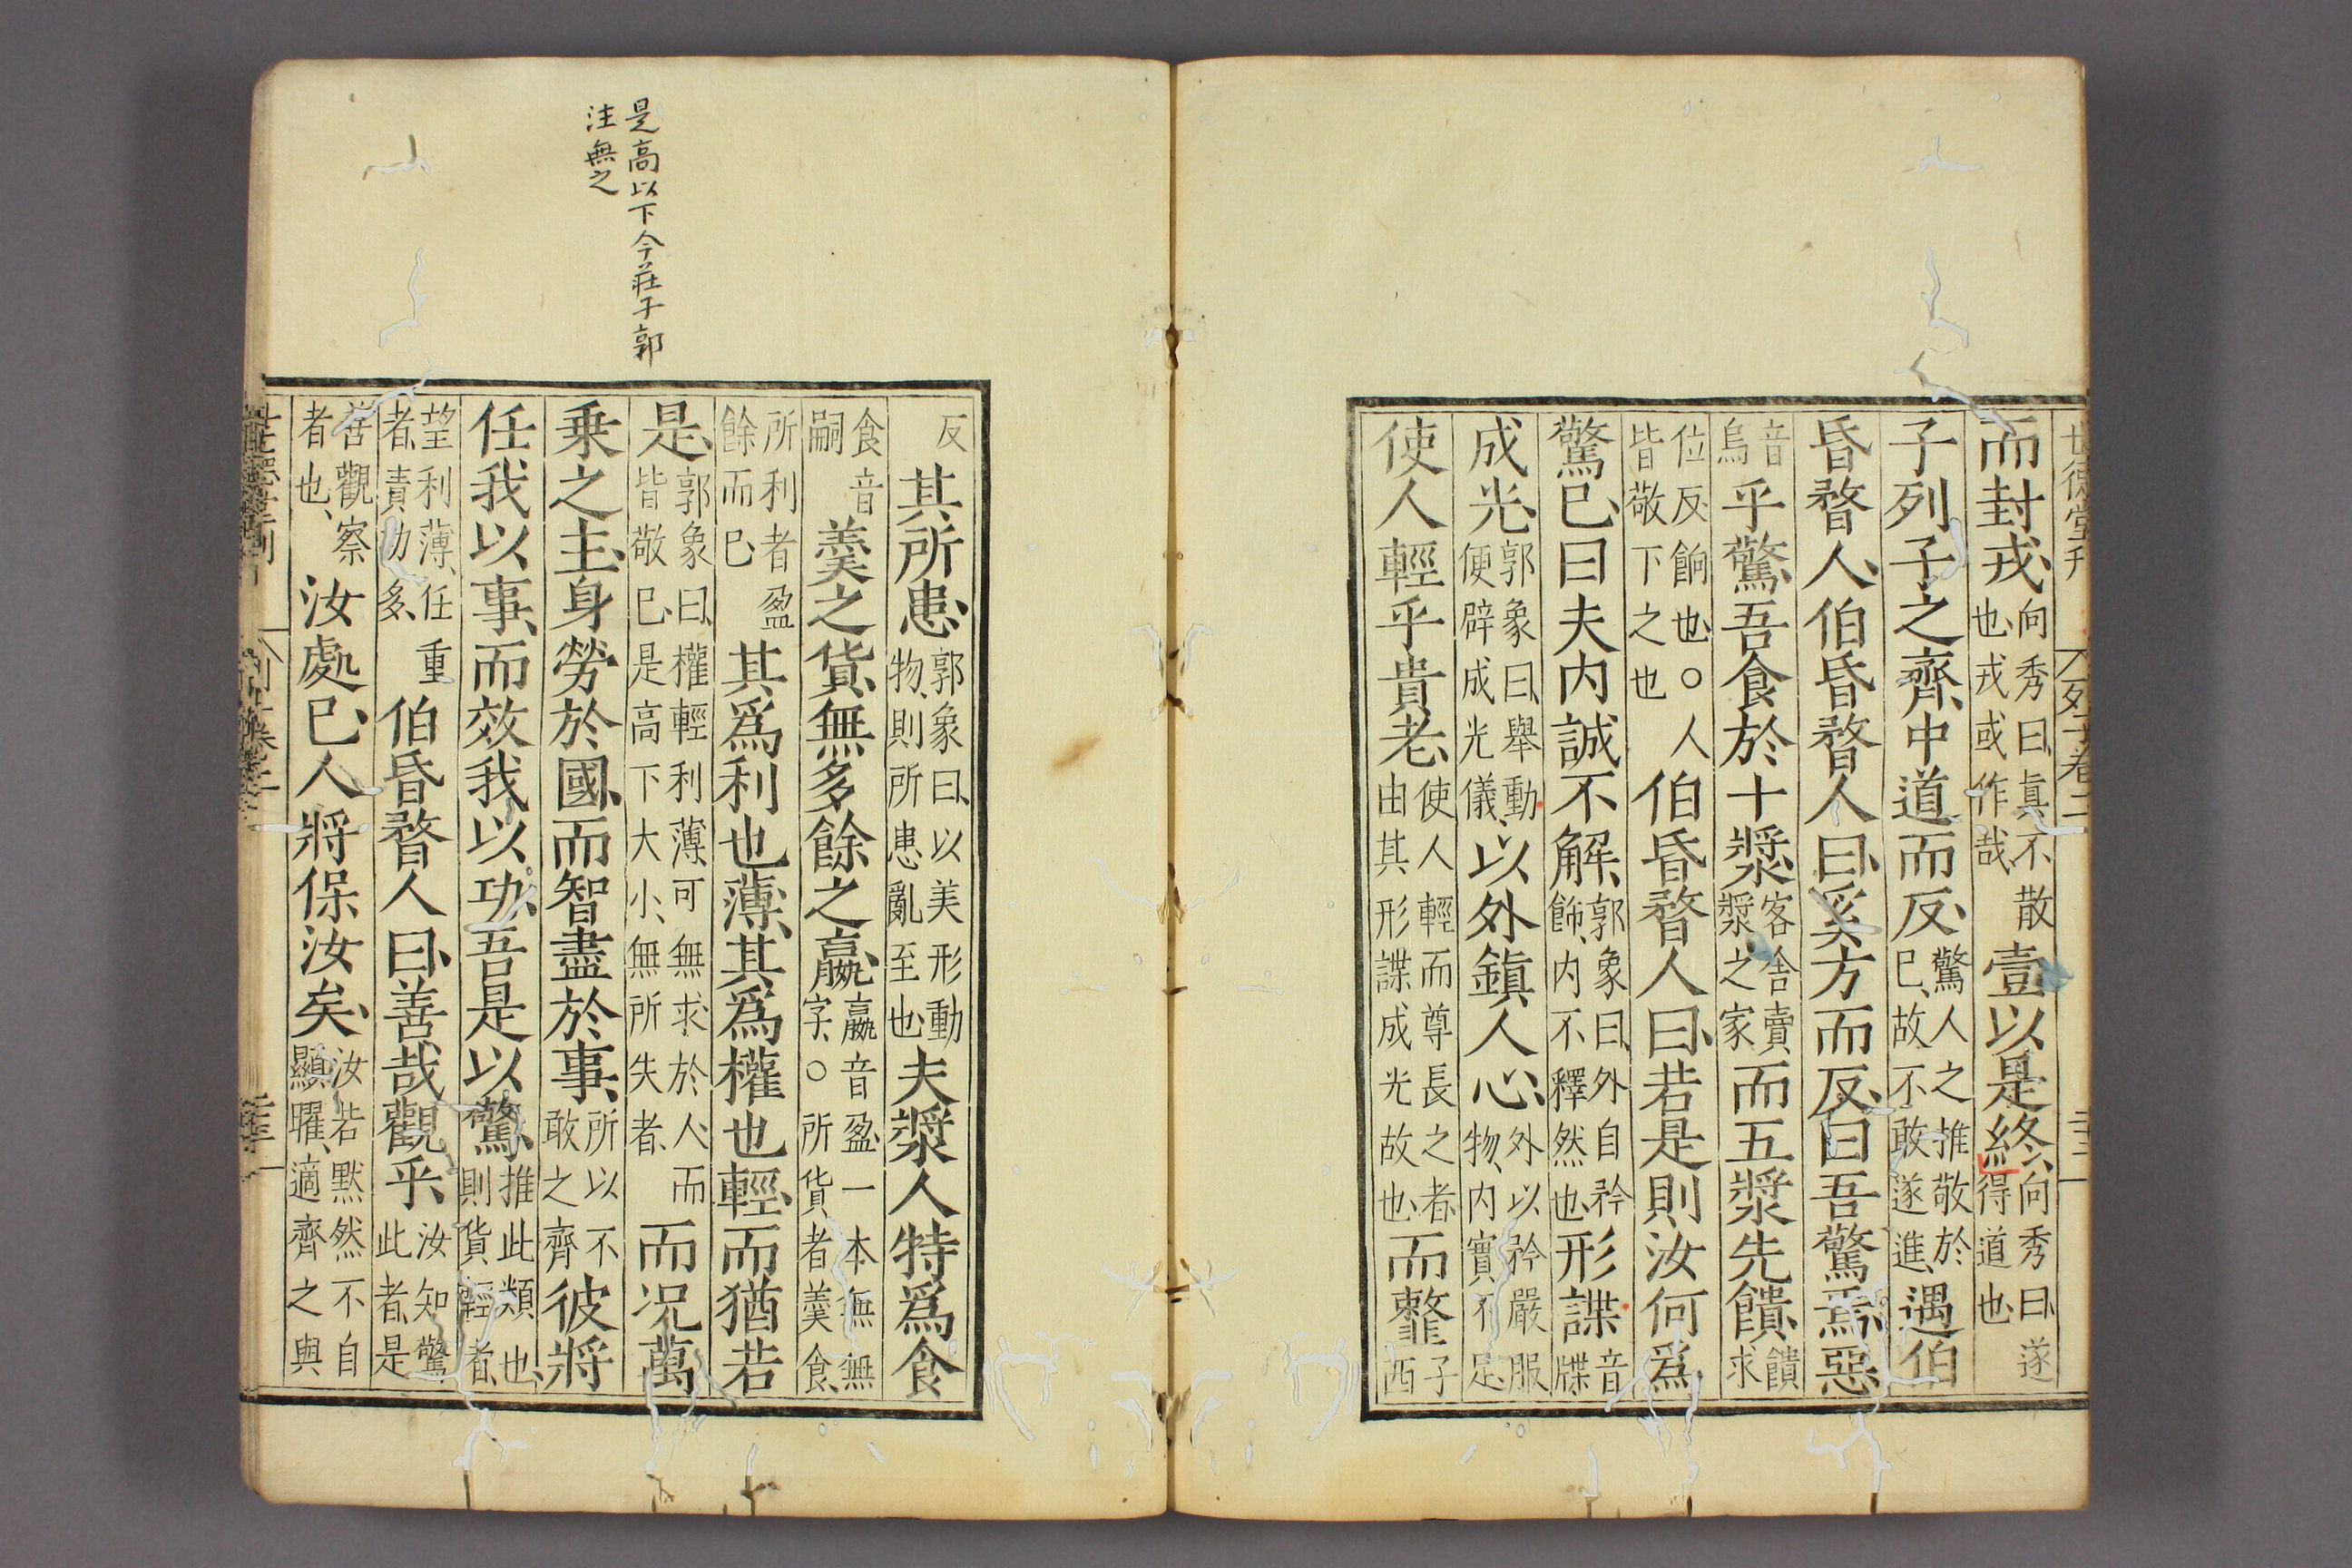 世德堂刊 列子卷二
而封戎向秀曰眞不散也戎或作哉壹以是終向秀曰遂得道也
子列子之齊中道而反驚人之推敬於已故不敢遂進遇伯
昏瞀人伯昏瞀人曰奚方而反曰吾驚焉惡
音烏乎驚吾食於十漿客舍賣漿之家而五漿先饋饋求
位反餉也○人皆敬下之也伯昏瞀人曰若是則汝何爲
驚已曰夫内誠不解郭象曰外自矜飾内不釋然也形諜音牒
成光郭象曰舉動便辟成光儀以外鎮人心外以矜嚴服物内實不足
使人輕乎貴老使人輕而尊長之者由其形諜成光故也而䪠子西
是高以下今莊子郭
注無之
反其所患郭象曰以美形動物則所患亂至也夫漿人特爲食
食音嗣羹之貨無多餘之嬴嬴音盈一本無無字○所貨者羹食
所利者盈餘而已其爲利也薄其爲權也輕而猶若
是郭象曰權輕利薄可無求於人而皆敬已是高下大小無所失者而况萬
乗之主身勞於國而智盡於事所以不敢之齊彼將
任我以事而效我以功吾是以驚推此類也則貨輕者
望利薄任重者責功多伯昏瞀人曰善哉觀乎汝知驚此者是
善觀察者也汝處已人將保汝矣汝若默然不自顯曜適齊之與